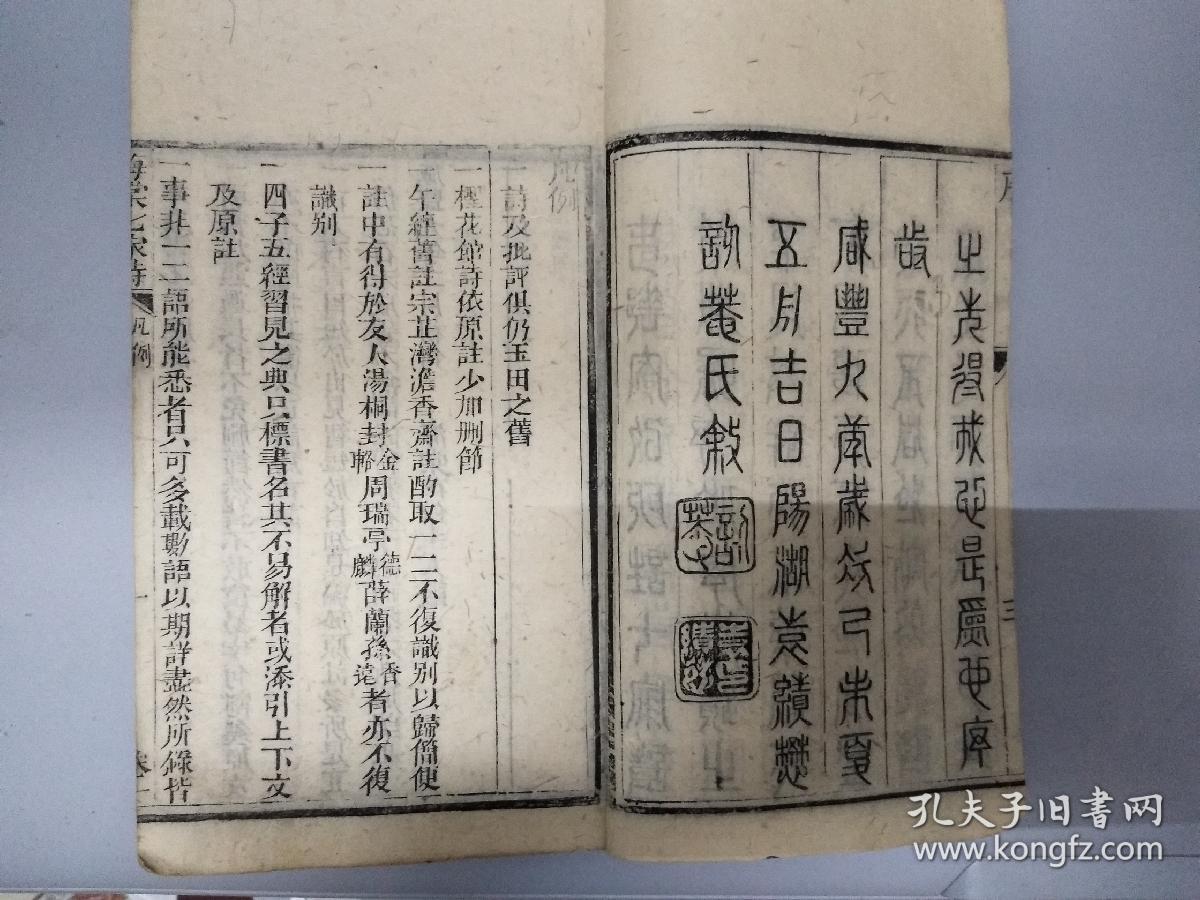 之光得哉也是爲也序
時
咸豐九年歲次己未夏
五月吉日陽湖袁績懋
訒菴氏敘
三
凡例
一詩及批評俱仍玉田之舊
一檉花館詩依原註少加刪節
一午經舊註宗芷灣澹香齋註酌取一二不復識別以歸簡便
一註中有得於友人湯桐封金輅周瑞亭德麟薛蘭孫香遠者亦不復
識別
一四子五經習見之典只標書名其不易解者或添引上下文
及原註
一事非一二語所能悉者只可多載數語以期詳盡然所錄皆
七家詩
凡例
一
卷一
孔夫子旧书网
www.kongfz.com